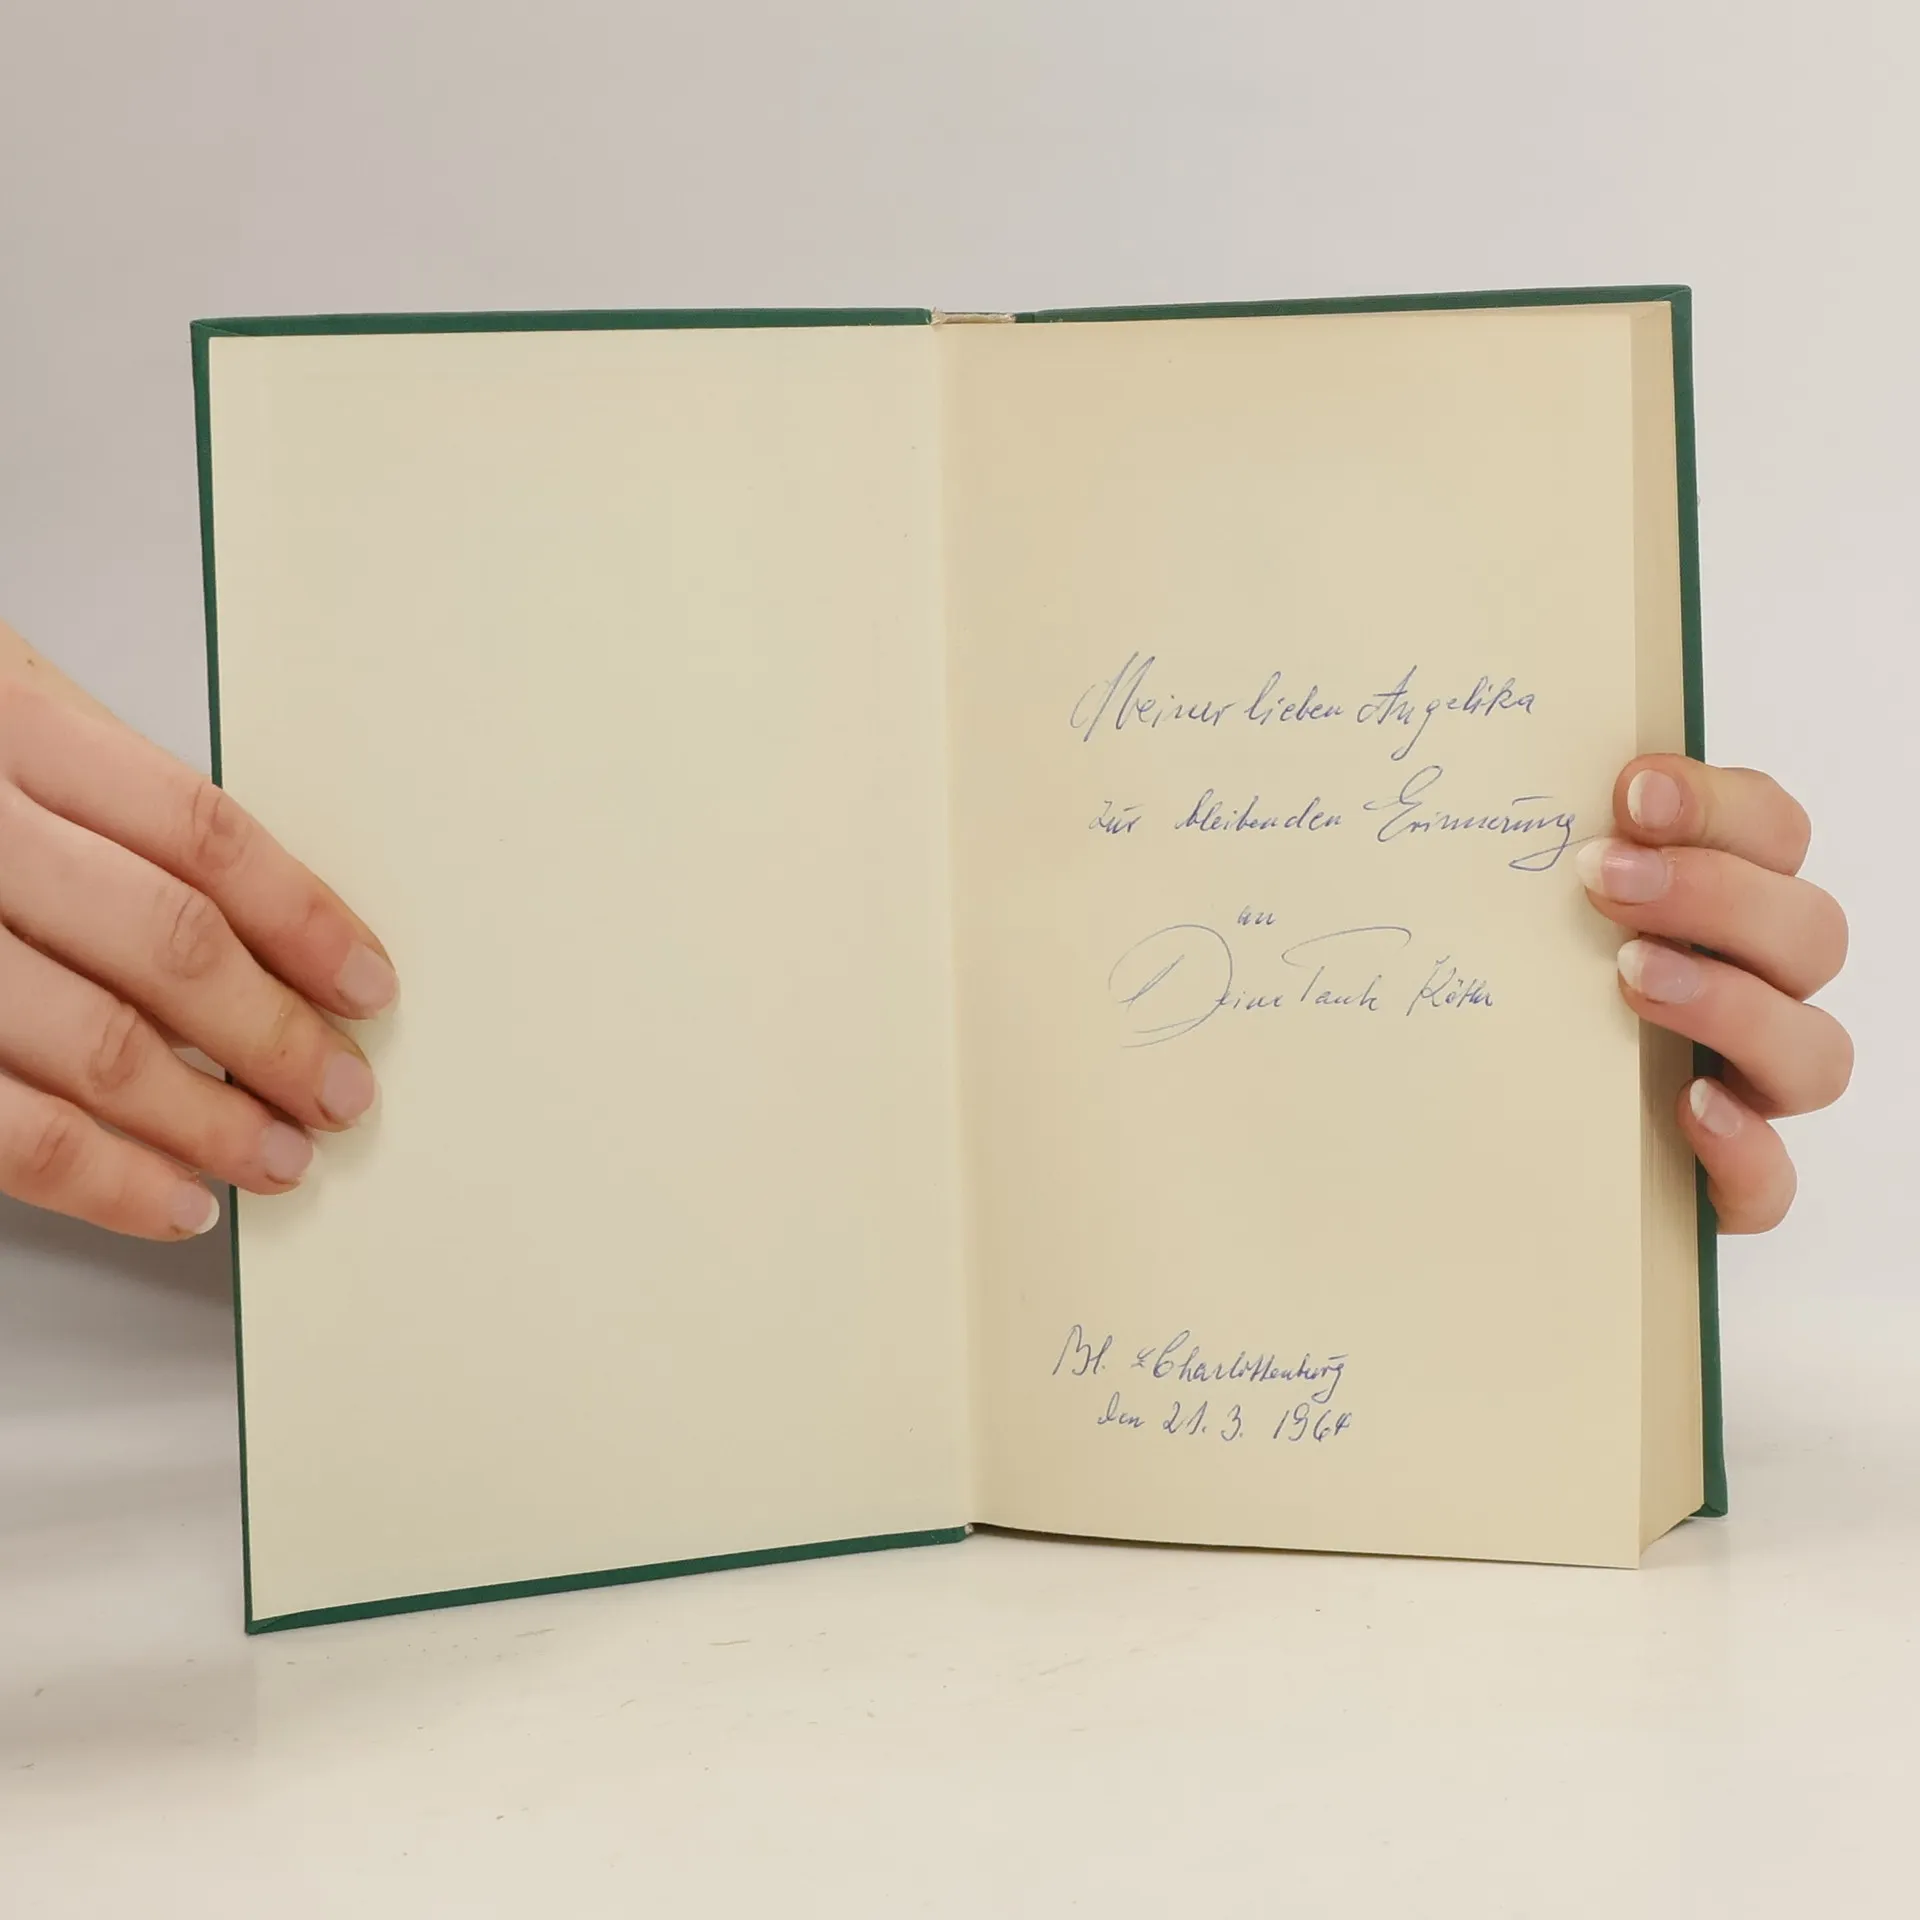 Meiner lieben Angelika
zur bleibenden Erinnerung
an
Deine Tante Käthe
Bl. Charlottenburg
den 21. 3. 1964